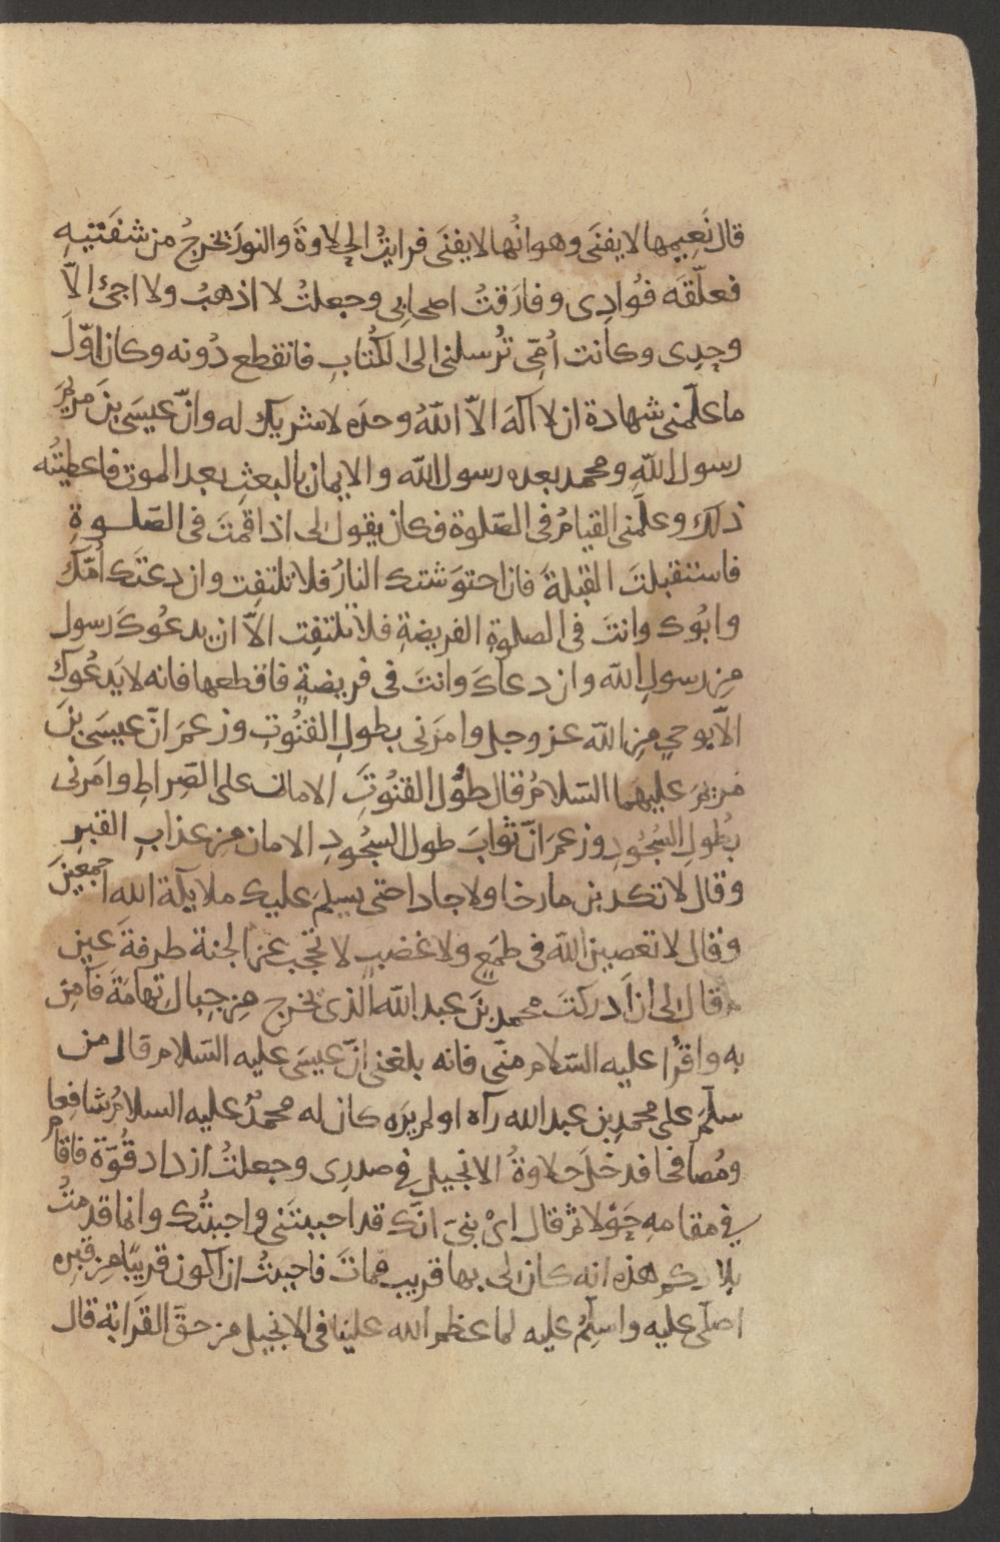 قال نَعيمها لا يفنَى وهوانُها لا يفنَى فرايتُ الحلاوةَ والنورَ تخرجُ من شفَتَيهِ
فعلّقَه فوُادِى وفارَقتُ اصحابِى وجعلتُ لا اذهبُ ولا اجئُ الّا
وحدِى وكانت اُمِّى تُرسلنى الى الكُتابِ فانقطع دُونه وكان اوّلَ
ما علّمنى شهادة ان لا اله الّا اللّهُ وحدَه لا شريك له وانّ عيسَى بنَ مريَمَ
رسول اللّهِ ومحمد بعده رسول اللّه والايمان بالبعثِ بعد الموت فاعطيتُه
ذلك وعلّمنى القيامُ فى الصّلوة فكان يقول لى اذا قمتَ فى الصّلوةِ
فاستقبلتَ القبلةَ فان احتوَشتك النارُ فلا تلتفِت وان دعتَك اُمّك
وابُوك وانتَ فى الصلوةِ الفريضةِ فلا تلتفِت الّا ان يدعُوكَ رسول
مِن رسولِ اللّه وان دعاكَ وانتَ فى فريضةٍ فاقطعها فانه لا يَدعُوك
الّا بوحىٍ مِن اللّه عز وجل وامرَنى بطولِ القنُوتِ وزعمَ انّ عيسَى بنَ
مَريمَ عليهما السّلامُ قال طوُل القنُوتِ الامان على الصِراطِ وامَرنى
بطُولِ السُجُودِ وزعمَ انّ ثوابَ طول السجُودِ الامان مِن عذابِ القبرِ
وقال لا تكذبن مازحا ولا جادا حتى يسلِّمَ عليك ملايكة اللّه اجمعِينَ
وقال لا تعصين اللّه فى طمَعٍ ولا غضبٍ لا تحجب عن الجنة طرفةَ عينٍ
وقال لى ان اَدركتَ محمد بنَ عبد اللّه الذى يخرج مِن جبال تهامَةَ فآمِن
به واقرُا عليه السّلام منّى فانه بلغنى انّ عيسَى عليه السّلام قال من
سلّمَ على محمدِ بن عبد اللّه رآه او لم يرَه كان له محمدٌ عليه السلامُ شافِعا
ومُصافحا فدخلَ حلاوةُ الانجيل فى صدرِى وجعلتُ ازداد قُوّة فاقام
فى مقامهِ حَوْلا ثم قال اىْ بنىَ انّك قد احببتَنى واحببتُك وانما قدمتُ
بلادكم هذه انه كان لى بها قريب فماتَ فاحببتُ ان اكون قريبًا مِن قبرِه
اصلّى عليه واسلِّمُ عليه لما عظم اللّه علينا فى الانجيل من حقّ القَرابة قال